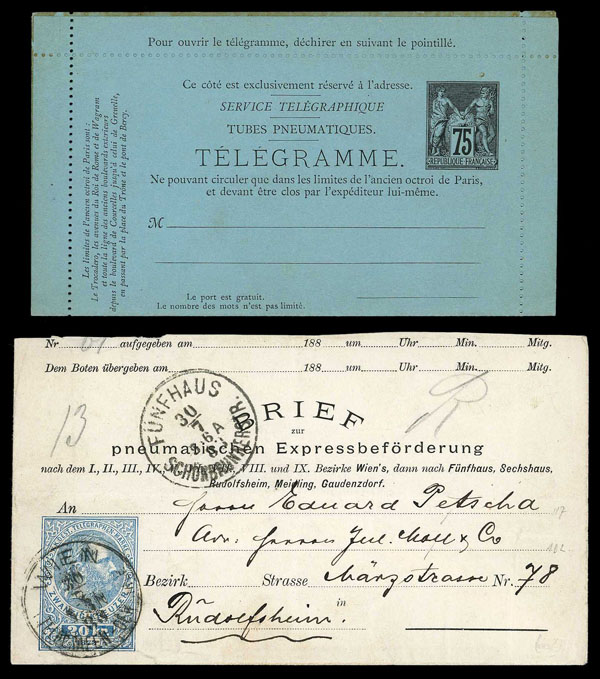 Pour ouvrir le télégramme, déchirer en suivant le pointillé.
Ce côté est exclusivement réservé à l'adresse.
SERVICE TÉLÉGRAPHIQUE
TUBES PNEUMATIQUES.
TÉLÉGRAMME.
Ne pouvant circuler que dans les limites de l'ancien octroi de Paris,
et devant être clos par l'expéditeur lui-même.
M
Le port est gratuit.
Le nombre des mots n'est pas limité.
75
REPUBLIQUE FRANÇAISE
Les limites de l'ancien octroi de Paris sont :
Le Trocadero, les avenues du Roi de Rome et de Wagram
et toute la ligne des anciens boulevards extérieurs
depuis le boulevard de Courcelles jusqu'à celui de Grenelle,
en passant par la place du Trône et le pont de Bercy.
Nr aufgegeben am 188 um Uhr Min. Mitg.
Dem Boten übergeben am 188 um Uhr Min. Mitg.
13
FÜNFHAUS
30/7
SCHÖNBRUNNERSTR.
BRIEF
zur
pneumatischen Expressbeförderung
nach dem I., II., III., IV. VIII. und IX. Bezirke Wien's, dann nach Fünfhaus, Sechshaus,
Rudolfsheim, Meidling, Gaudenzdorf.
An Herrn Eduard Petscha
Adr. Herren Jul. Moll & Co
Bezirk Strasse Märzstrasse Nr. 78
in
Rudolfsheim.
WIEN
20 kr